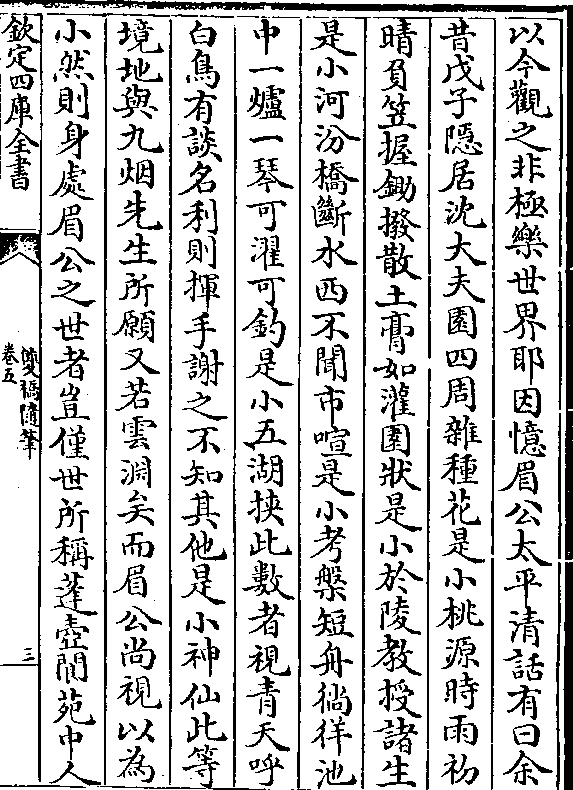 以今觀之非極樂世界耶因憶眉公太平清話有曰余
昔戊子隱居沈大夫園四周雜種花是小桃源時雨初
晴負笠握鋤撥散土膏如灌園狀是小於陵教授諸生
是小河汾橋斷水西不聞市喧是小考槃短舟徜徉池
中一爐一琴可濯可釣是小五湖挾此數者視青天呼
白鳥有談名利則揮手謝之不知其他是小神仙此等
境地與九烟先生所願又若雲淵矣而眉公尚視以為
小然則身處眉公之世者豈僅世所稱蓬壺閬苑中人
欽定四庫全書
雙橋隨筆
卷五
三